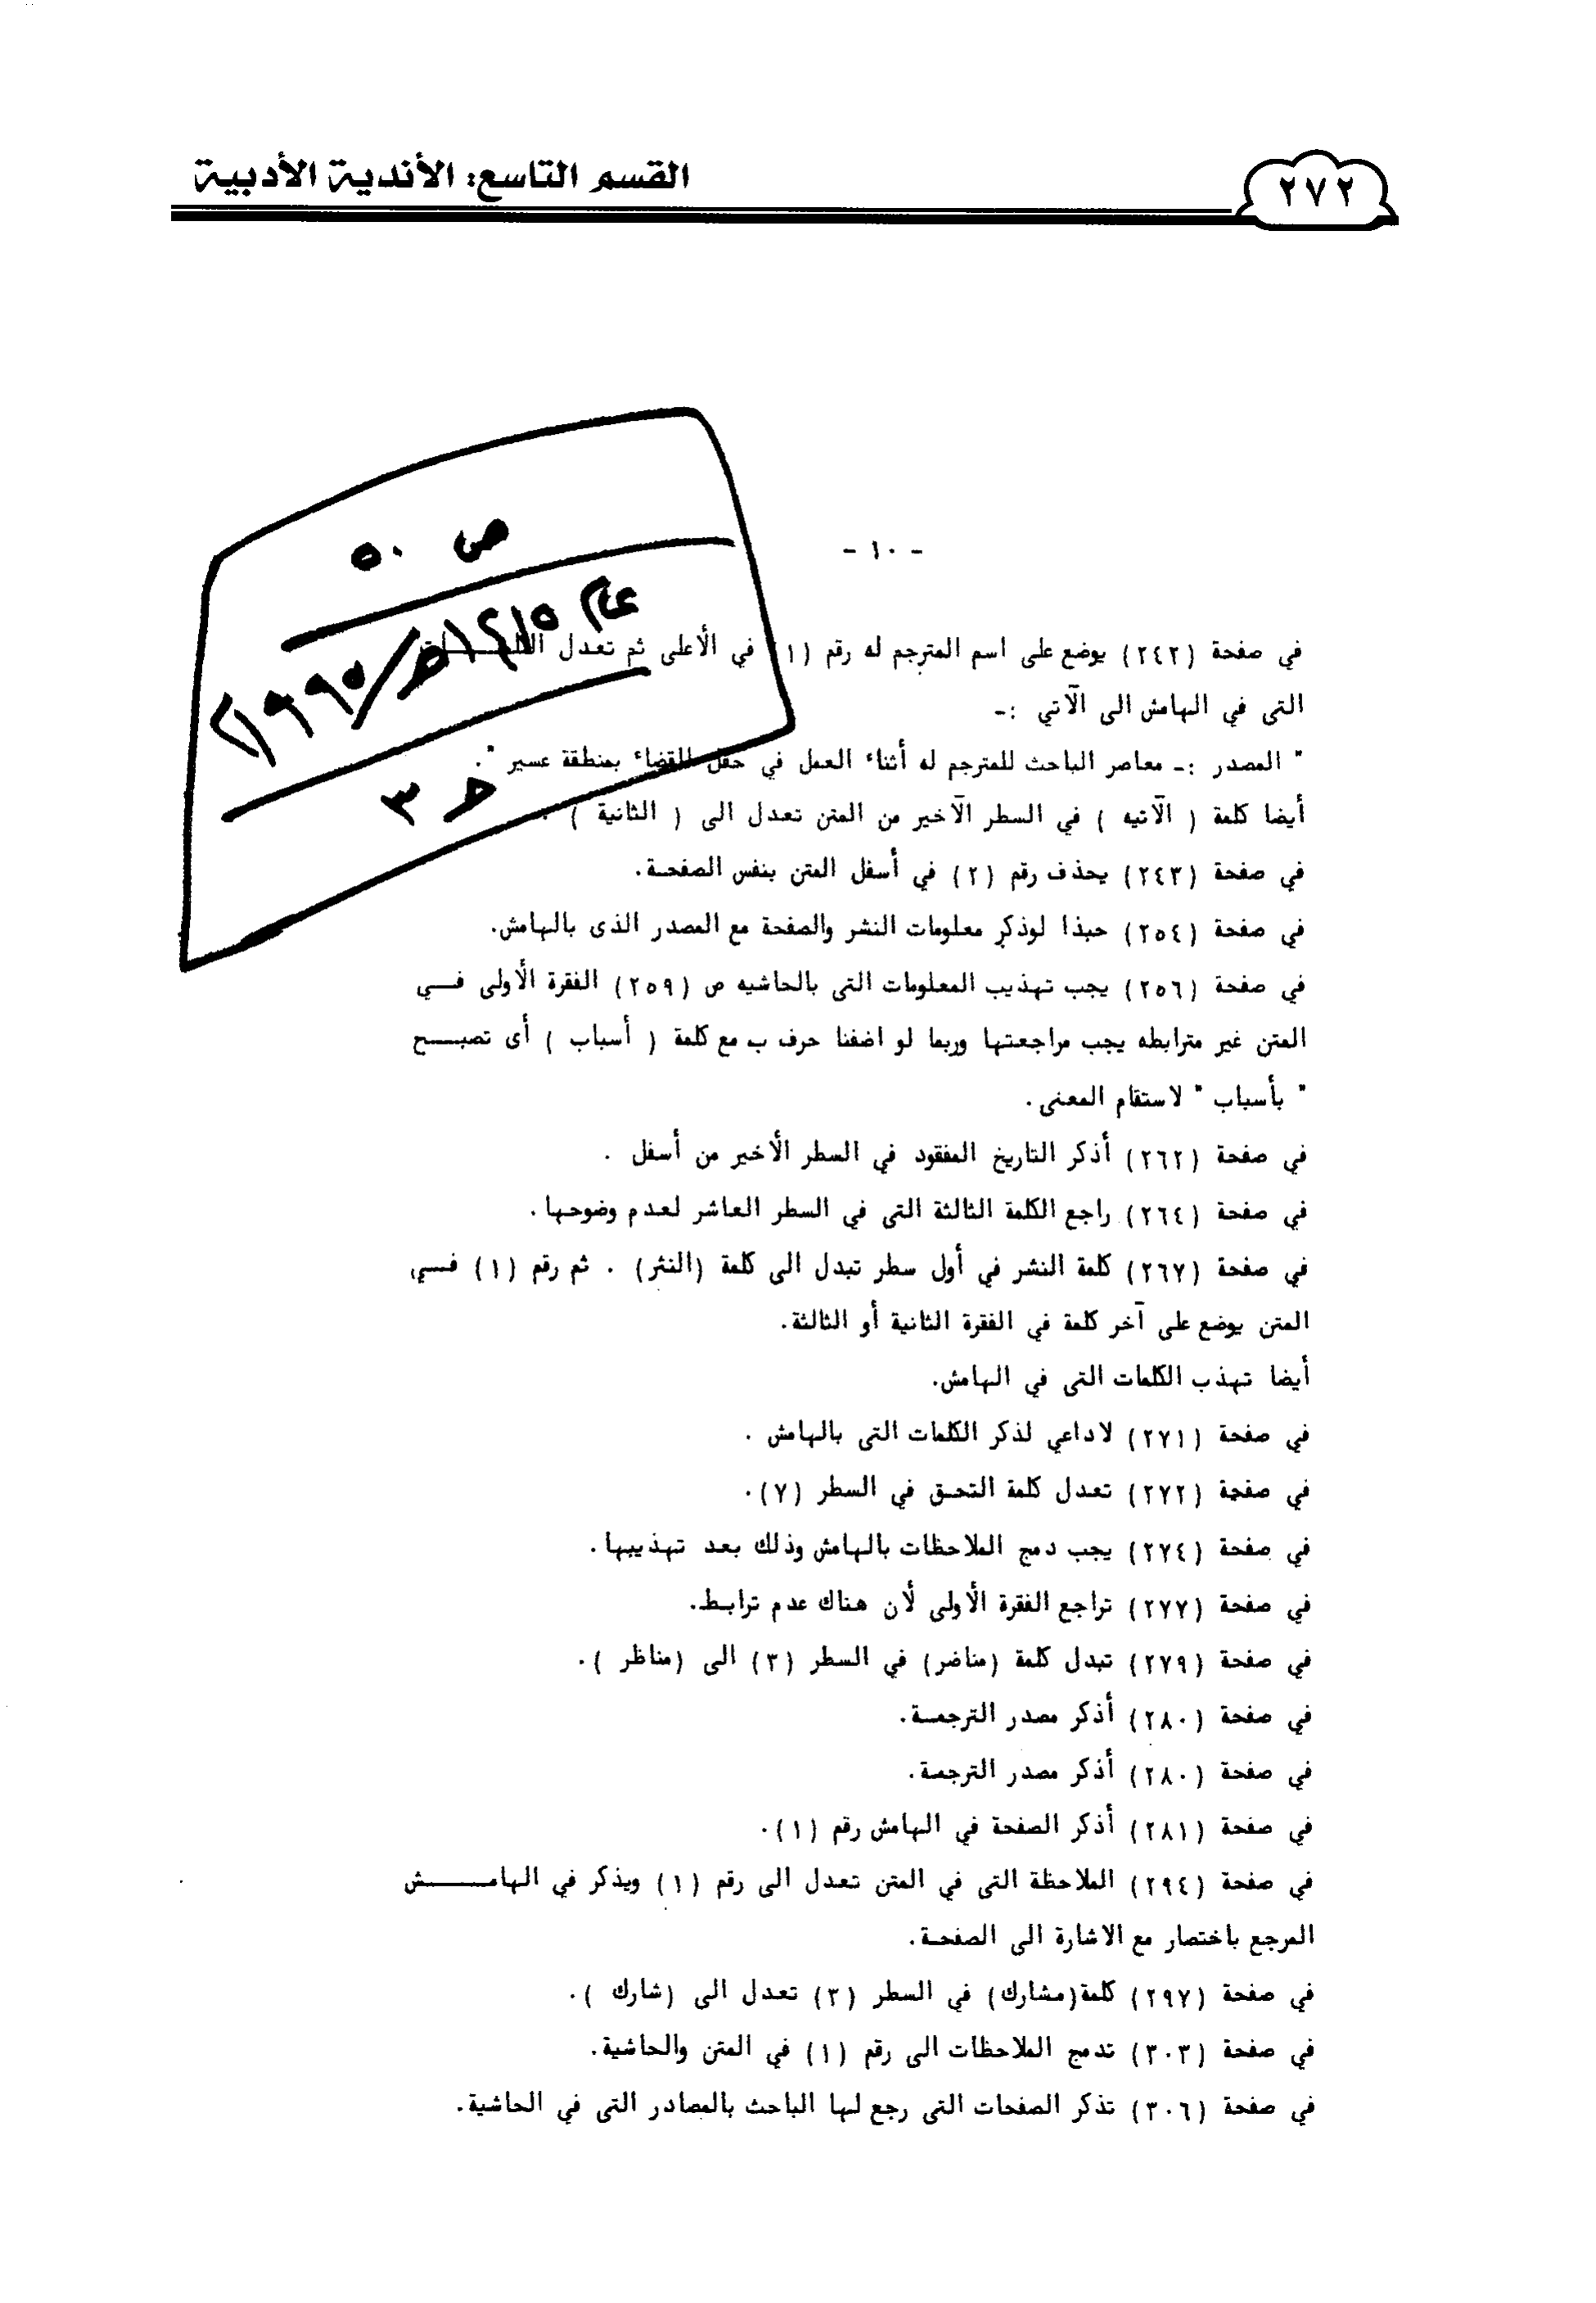 ٢٧٢
القسم التاسع: الأندية الأدبية
ص ٥٠
عام ١٤١٥هـ/١٩٩٥م
حـ ٣
- ١٠ -
في صفحة (٢٤٢) يوضع على اسم المترجم له رقم (١) في الأعلى ثم تعدل الكلمــات
التى في الهامش الى الآتي :-
" المصدر :- معاصر الباحث للمترجم له أثناء العمل في حقل القضاء بمنطقة عسير ".
أيضا كلمة ( الآتيه ) في السطر الآخير من المتن تعدل الى ( الثانية ) .
في صفحة (٢٤٣) يحذف رقم (٢) في أسفل المتن بنفس الصفحـة.
في صفحة (٢٥٤) حبذا لوذكر معلومات النشر والصفحة مع المصدر الذى بالهامش.
في صفحة (٢٥٦) يجب تهذيب المعلومات التى بالحاشيه ص (٢٥٩) الفقرة الأولى فــي
المتن غير مترابطه يجب مراجعتها وربما لو اضفنا حرف ب مع كلمة ( أسباب ) أى تصبــح
" بأسباب " لاستقام المعنى.
في صفحة (٢٦٢) أذكر التاريخ المفقود في السطر الأخير من أسفل .
في صفحة (٢٦٤) راجع الكلمة الثالثة التى في السطر العاشر لعدم وضوحها.
في صفحة (٢٦٧) كلمة النشر في أول سطر تبدل الى كلمة (النثر) . ثم رقم (١) فــي
المتن يوضع على آخر كلمة في الفقرة الثانية أو الثالثة.
أيضا تهذب الكلمات التى في الهامش.
في صفحة (٢٧١) لاداعي لذكر الكلمات التى بالهامش .
في صفحة (٢٧٢) تعدل كلمة التحـق في السطر (٧).
في صفحة (٢٧٤) يجب دمج الملاحظات بالهامش وذلك بعد تهذيبها.
في صفحة (٢٧٧) تراجع الفقرة الأولى لأن هناك عدم ترابـط.
في صفحة (٢٧٩) تبدل كلمة (مناضر) في السطر (٣) الى (مناظر ).
في صفحة (٢٨٠) أذكر مصدر الترجمـة.
في صفحة (٢٨٠) أذكر مصدر الترجمة.
في صفحة (٢٨١) أذكر الصفحة في الهامش رقم (١).
في صفحة (٢٩٤) الملاحظة التى في المتن تعدل الى رقم (١) ويذكر في الهامــــش
المرجع باختصار مع الاشارة الى الصفحـة.
في صفحة (٢٩٧) كلمة(مشارك) في السطر (٣) تعدل الى (شارك ).
في صفحة (٣٠٣) تدمج الملاحظات الى رقم (١) في المتن والحاشية.
في صفحة (٣٠٦) تذكر الصفحات التى رجع لها الباحث بالمصادر التى في الحاشية.